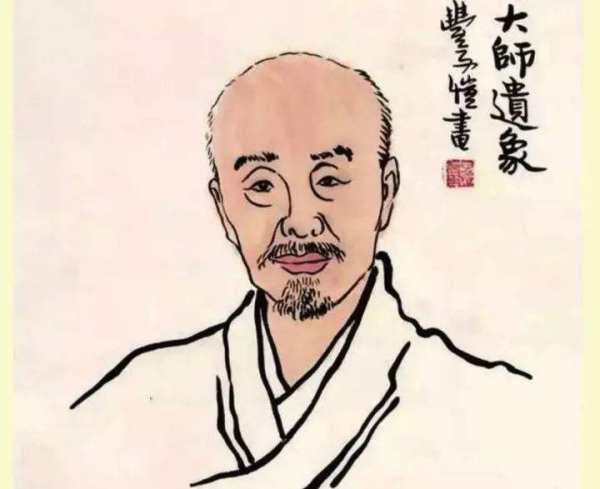 大師遺象
豐子愷畫